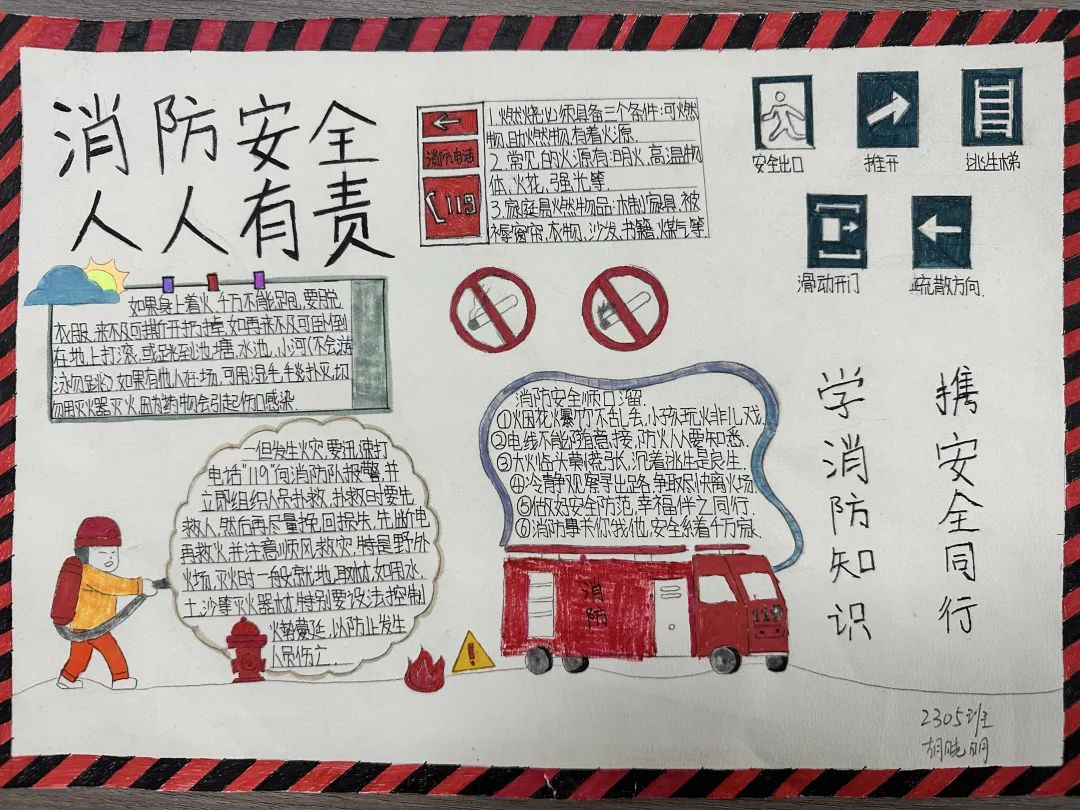 消防安全
人人有责
消防电话
119
1.燃烧必须具备三个条件:可燃
物,助燃物,有着火源.
2.常见的火源有:明火,高温物
体,火花,强光等.
3.家庭易燃物品:木制家具,被
褥,窗帘,衣物,沙发,书籍,煤气等
安全出口
推开
逃生梯
滑动开门
疏散方向.
如果身上着火,千万不能跑,要脱
衣服,来不及可撕开扔掉,如再来不及可倒
在地上打滚,或跳到池塘,水池,小河(不会游
泳勿跳).如果有他人在场,可用湿毛毯扑灭,切
勿用灭火器灭火,因为药物会引起伤口感染.
一但发生火灾,要迅速打
电话"119"向消防队报警,并
立即组织人员扑救,扑救时要先
救人,然后再尽量挽回损失,先断电
再救火,并注意顺风救灾,特是野外
火场,灭火时一般就地取材,如用水
土沙等灭火器材,特别要设法控制
火势蔓延,以防止发生
人员伤亡.
消防安全顺口溜.
①烟花火爆竹不乱丢,小孩玩火非儿戏.
②电线不能随意接,防火人人要知悉.
③大火临头莫慌张,沉着逃生是良生.
④冷静观察寻出路,争取尽快离火场.
⑤做好安全防范,幸福伴之同行.
⑥消防事关你我他,安全系着千万家.
消
防
119
学消防知识
携安全同行
2305班
胡晓明